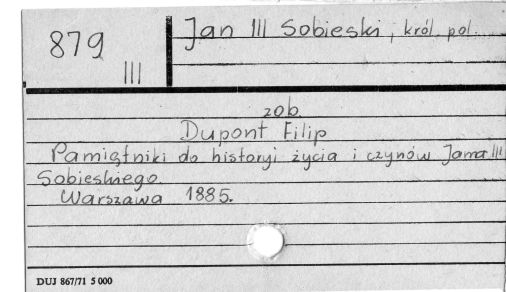 879
III
Jan III Sobieski, król pol.
zob.
Dupont Filip
Pamiętniki do historyi życia i czynów Jana III
Sobieskiego
Warszawa 1885.
DUJ 867/71 5 000